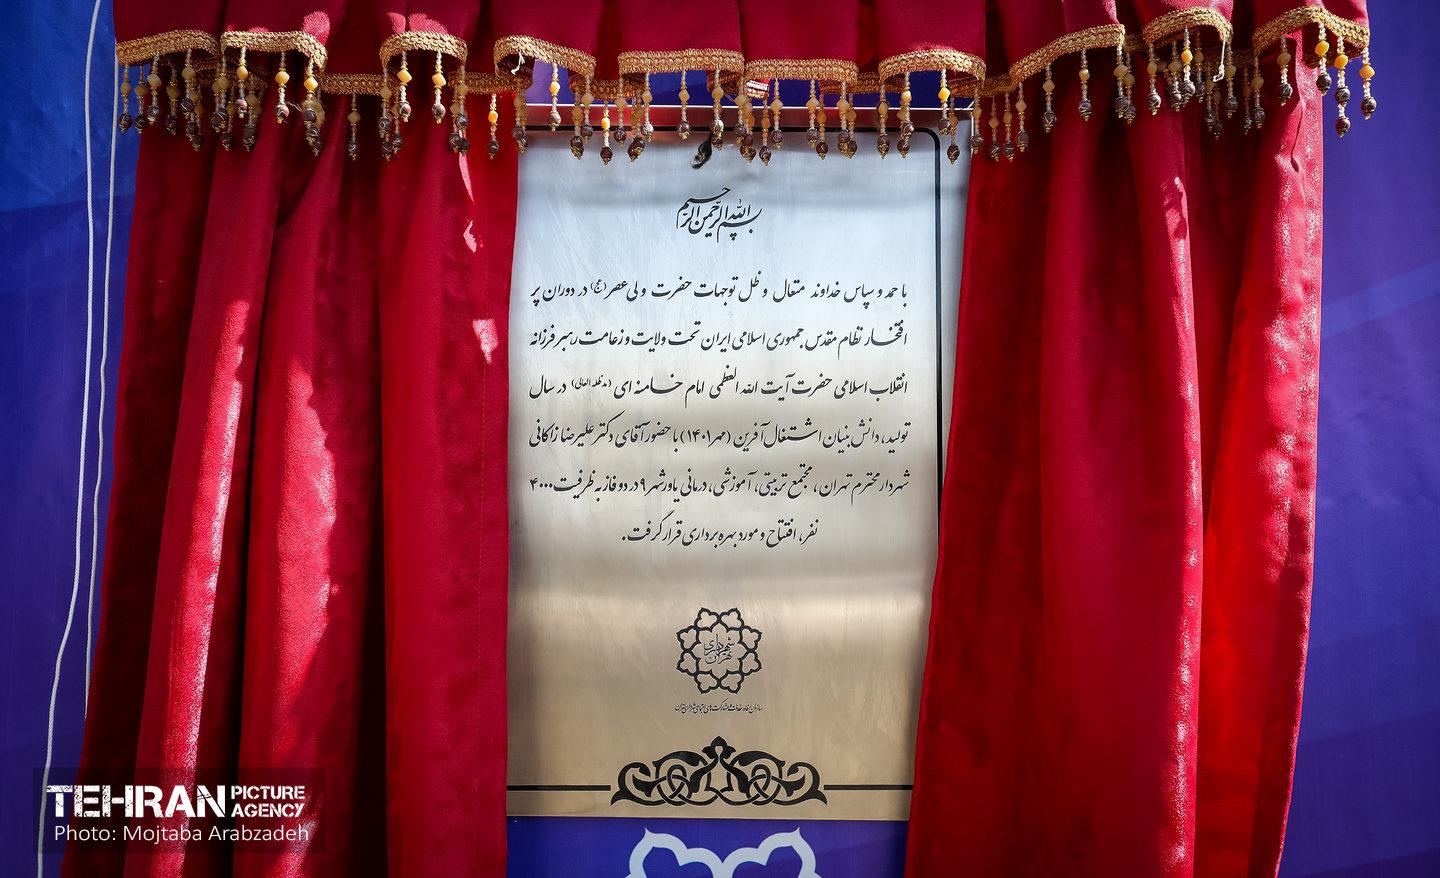 بسم الله الرحمن الرحیم
با حمد و سپاس خداوند متعال و ظل توجهات حضرت ولی‌عصر(عج) در دوران پر
افتخار نظام مقدس جمهوری اسلامی ایران تحت ولایت و زعامت رهبر فرزانه
انقلاب اسلامی حضرت آیت الله العظمی امام خامنه ای (مدظله العالی) در سال
تولید، دانش بنیان اشتغال‌آفرین (مهر ۱۴۰۱) با حضور آقای دکتر علیرضا زاکانی
شهردار محترم تهران، مجتمع تربیتی، آموزشی، درمانی یاورشهر ۹ در دو فاز به ظرفیت ۴۰۰۰
نفر، افتتاح و مورد بهره برداری قرار گرفت.
شهرداری تهران
سازمان رفاه، خدمات و مشارکت‌های اجتماعی شهرداری تهران
TEHRAN PICTURE AGENCY
Photo: Mojtaba Arabzadeh